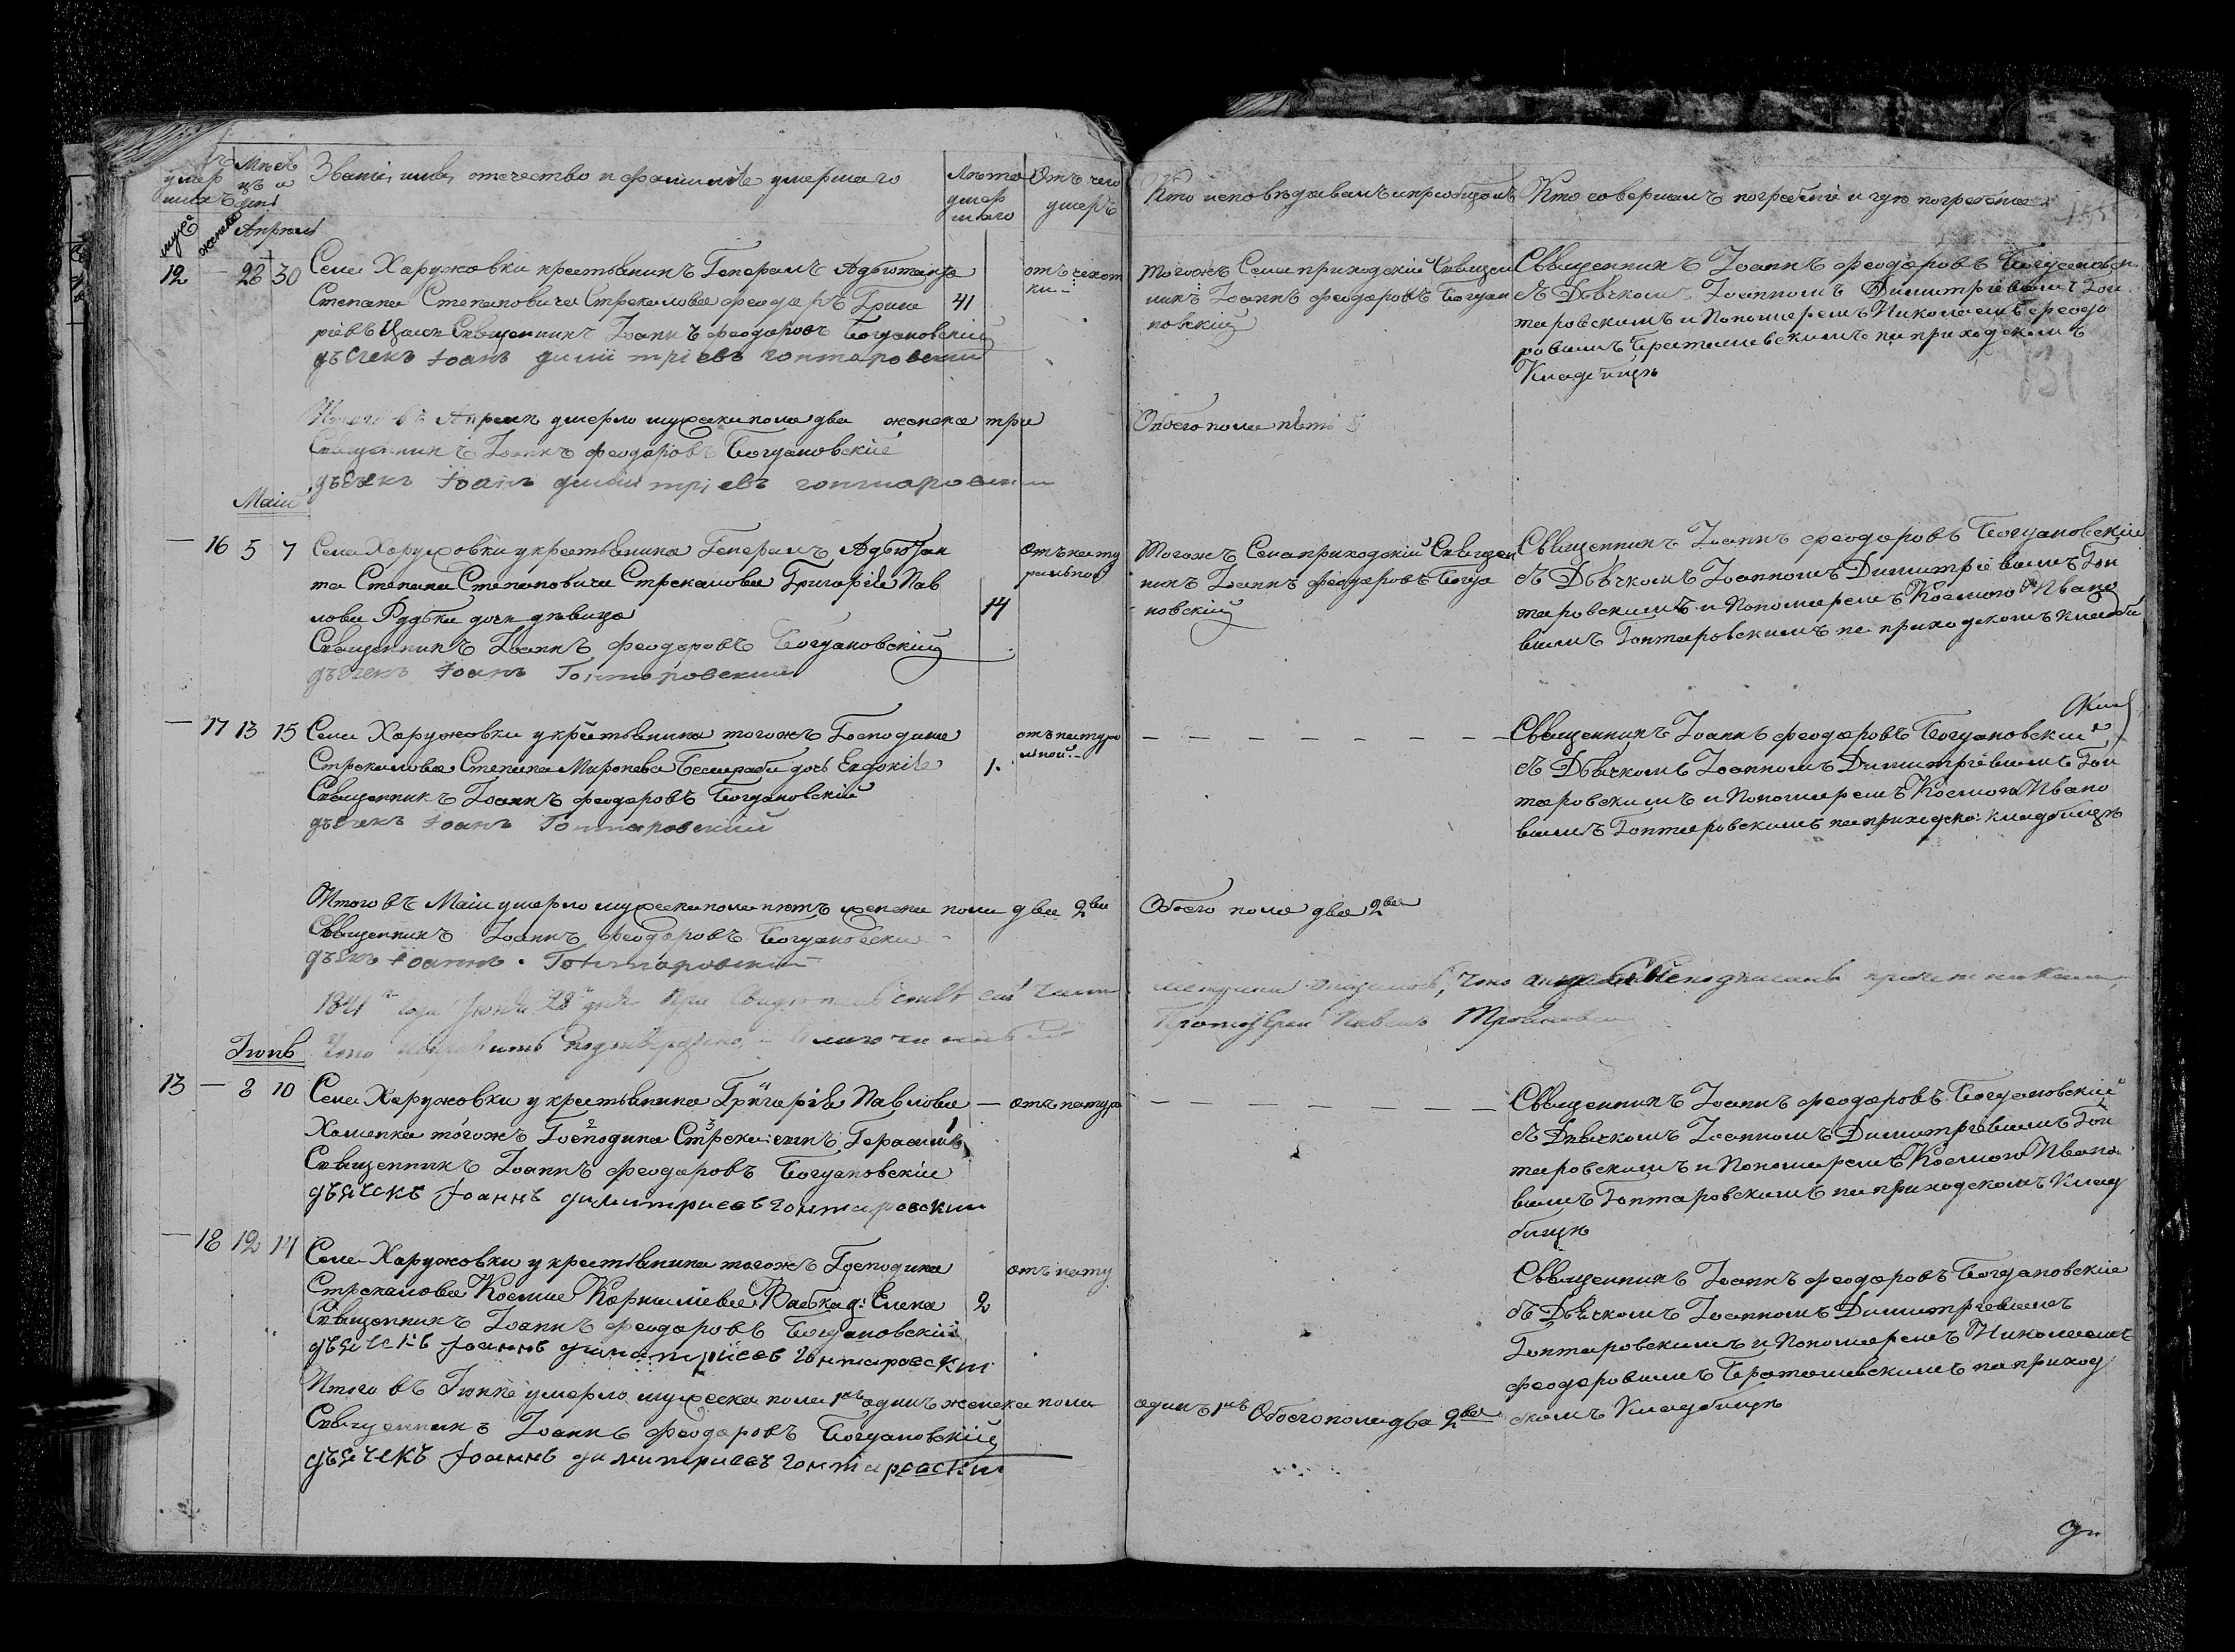 умер
шихъ
Мѣся
цъ и
дни
Званіе, имя, отечество и фамилія умершаго
Лѣта
умер
шаго
Отъ чего
умеръ
муж
женска
Апрѣль
12 — 28 30 Села Харужовки крестьянинъ Генералъ Адъютанта
Степана Степановича Стрекалова Феодоръ Григо 41
ріевъ Священникъ Іоаннъ Феодоровъ Богдановскій
дьячекъ Іоанъ Димитріевъ Гонтаровский
отъ чахот
ки
Итого въ Апрѣлѣ умерло мужска пола два женска три
Священникъ Іоаннъ Феодоровъ Богдановскій
дьячекъ Іоанъ Димитріевъ Гонтаровский
Маій
— 16 5 7 Села Харужовки у крестьянина Генералъ Адъютан
та Степана Степановича Стрекалова Григорія Пав
лова Рудьки дочь дѣвица 14
Священникъ Іоаннъ Феодоровъ Богдановскій
дьячекъ Іоанъ Гонтаровский
Отъ нату
ральной
— 17 13 15 Села Харужовки у крестьянина тогожъ Господина
Стрекалова Степана Миронова дочь Евдокія 1.
Священникъ Іоаннъ Феодоровъ Богдановскій
дьячекъ Іоанъ Гонтаровский
отъ натура
льной
Итого въ Маіи умерло мужска пола нѣтъ женска пола два 2ва
Священникъ Іоаннъ Феодоровъ Богдановский
дьякъ Іоаннъ Гонтаровский
1841 года Июня 28 дня При
Іюнь
13 — 8 10 Села Харужовки у крестьянина Григорія Павлова —
Хоменка тогожъ Господина сынъ Герасимъ 1
Священникъ Іоаннъ Феодоровъ Богдановскій
дьячекъ Іоаннъ Димитриевъ Гонтаровский
отъ натура
— 18 12 14 Села Харужовки у крестьянина тогожъ Господина
Стрекалова Космы Корниліева Бабка д: Елена 2
Священникъ Іоаннъ Феодоровъ Богдановскій
дьячекъ Іоаннъ Димитриевъ Гонтаровский
отъ нату
Итого въ Іюнѣ умерло мужска пола 1нъ одинъ женска пола
Священникъ Іоаннъ Феодоровъ Богдановскій
дьячекъ Іоаннъ Димитриевъ Гонтаровский
Кто исповѣдывалъ и пріобщалъ
Кто совершалъ погребеніе и гдѣ погребены
Тогожъ Села приходскій Священ
никъ Іоаннъ Феодоровъ Богда
новскій
Священникъ Іоаннъ Феодоровъ Богдановск
съ Дьячкомъ Іоанномъ Димитріевымъ Гон
таровскимъ и Пономаремъ Николаемъ Феодо
ровымъ на приходскомъ
Кладбищѣ
Обоего пола пять 5
Тогожъ Села приходскій Священ
никъ Іоаннъ Феодоровъ Богда
новскій
Священникъ Іоаннъ Феодоровъ Богдановскій
съ Дьячкомъ Іоанномъ Димитріевымъ Гон
таровскимъ и Пономаремъ Космою Ивано
вымъ Гонтаровскимъ на приходскомъ кладби
Священникъ Іоаннъ Феодоровъ Богдановскій
съ Дьячкомъ Іоанномъ Димитріевымъ Гон
таровскимъ и Пономаремъ Космою Ивано
вымъ Гонтаровскимъ на приходско: кладбищѣ
Обоего пола два 2ва
Священникъ Іоаннъ Феодоровъ Богдановскій
съ Дьячкомъ Іоанномъ Димитріевымъ Гон
таровскимъ и Пономаремъ Космою Ивано
вымъ Гонтаровскимъ на приходскомъ Клад
бищѣ
Священникъ Іоаннъ Феодоровъ Богдановскій
съ Дьячкомъ Іоанномъ Димитріевымъ
Гонтаровскимъ и Пономаремъ Николаемъ
Феодоровымъ на приход
скомъ Кладбищѣ
одинъ 1нъ Обоего пола два 2ва